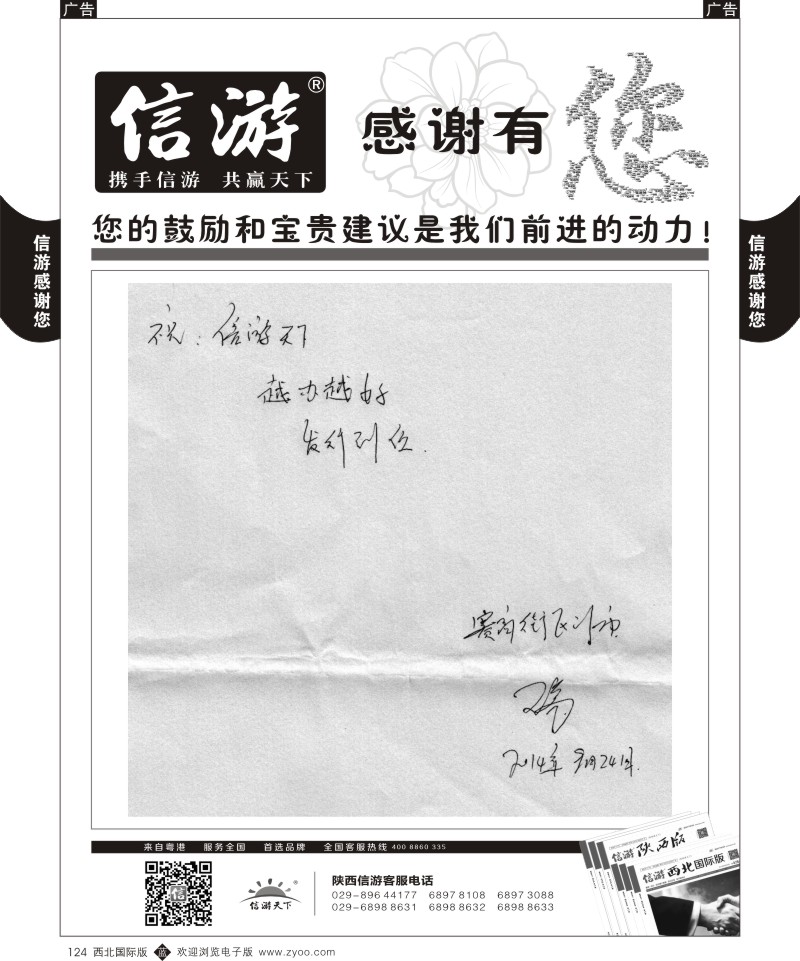 广告
广告
信游®
携手信游 共赢天下
感谢有
您
您的鼓励和宝贵建议是我们前进的动力!
信游感谢您
信游感谢您
祝:信游天下
越办越好
发行到位.
2014年 9月24日.
来自粤港 服务全国 首选品牌 全国客服热线 400 8860 335
信游
信游天下
陕西信游客服电话
029-896 44177 6897 8108 6897 3088
029-6898 8631 6898 8632 6898 8633
信游 陕西版
信游 西北国际版
124 西北国际版 蓝 欢迎浏览电子版 www.zyoo.com